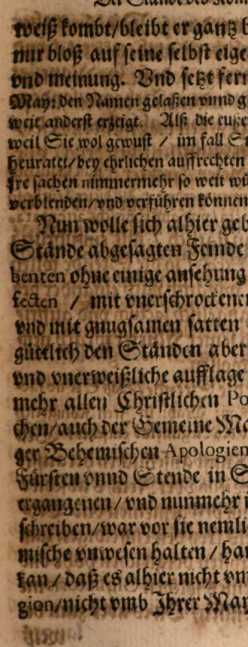 weiß kombt/bleibt er gantz b
nur bloß auf seine selbst eige
vnd meinung. Vnd setzt fern
May: den Namen gelaßen vnnd g
weit anderst erzeigt. Alß die
weil Sie wol gewust / im fall S
heuratet/bey ehrlichen auffrechten
Ire sachen nimmermehr so weit wü
verblenden/vnd verführen können
Nun wolle sich alhier geb
Stände abgesagten Feinde
benten ohne einige ansehung
fecten / mit vnerschrockenen
vnd mit gnugsamen satten
güttlich den Ständen aber
vnd vnerweißliche aufflage
mehr allen Christlichen Po
chen/auch der Gemeine Ma
ger Behemischen Apologien
Fürsten vnnd Stende in S
ergangenen/vnd nunmehr i
schreiben/war vor sie nemli
mische vnwesen halten/ha
kan/daß es alhier nicht vm
gion/nicht vmb Ihrer May